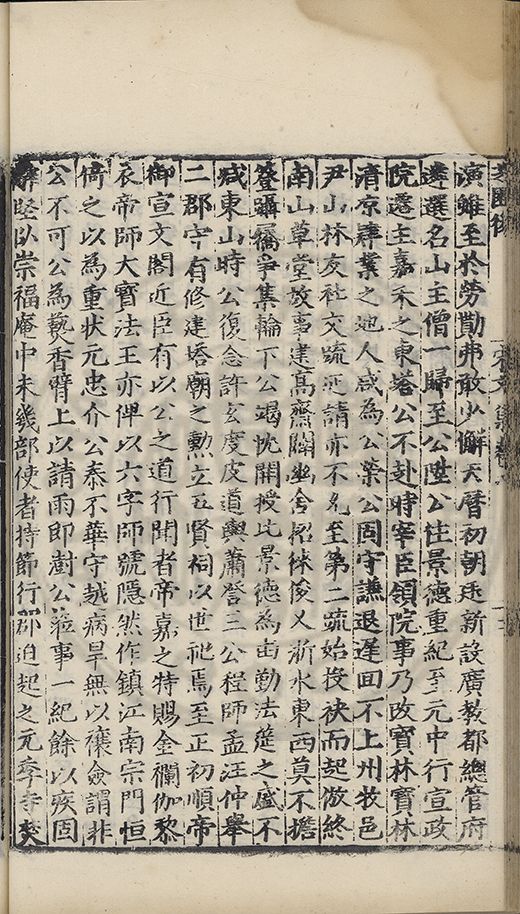 演雖至於勞勩弗敢少懈天曆初朝廷新設廣教都總管府
遴選名山主僧一歸至公陞公住景德重紀至元中行宣政
院遷主嘉禾之東塔公不赴時宰臣領院事乃改寶林寶林
清京肄業之地人咸為公榮公固守謙退遲回不上州牧邑
尹山林友社交疏延請亦不允至第二疏始投袂而起倣終
南山草堂故事建高齋闢幽舍招徠俊乂浙水東西莫不擔
簦躡屩爭集輪下公竭忱開授比景德為尤勤法筵之盛不
減東山時公復念許玄度皮道輿蕭詧三公程師孟汪仲舉
二郡守有修建塔廟之勳立五賢祠以世祀焉至正初順帝
御宣文閣近臣有以公之道行聞者帝嘉之特賜金襴伽黎
衣帝師大寶法王亦俾以六字師號隱然作鎮江南宗門恒
倚之以為重狀元忠介公泰不華守越病旱無以禳僉謂非
公不可公為爇香臂上以請雨即澍公蒞事一紀餘以疾固
辭堅臥崇福庵中未幾部使者持節行郡迫起之元季寺燹